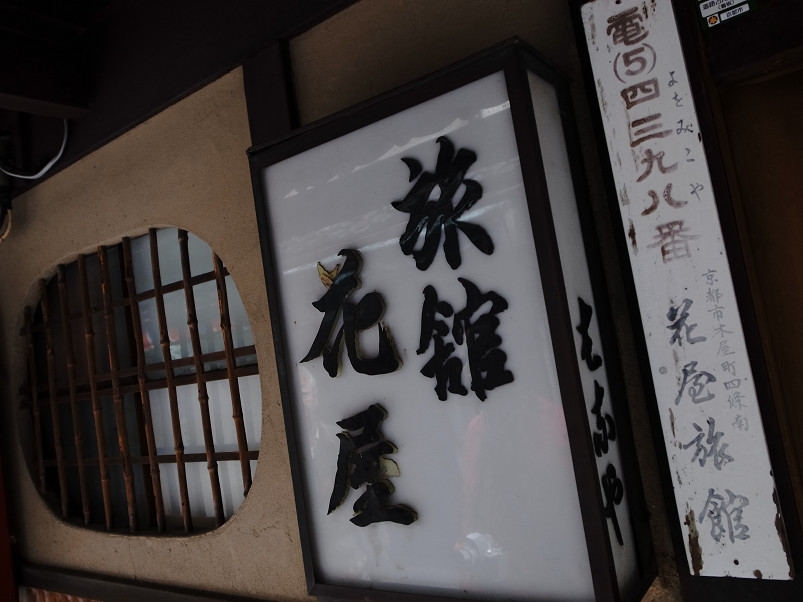 旅館
花屋
はなや
電⑤四三九八番
よをみこや
京都市木屋町四條南
花屋旅館
京都市